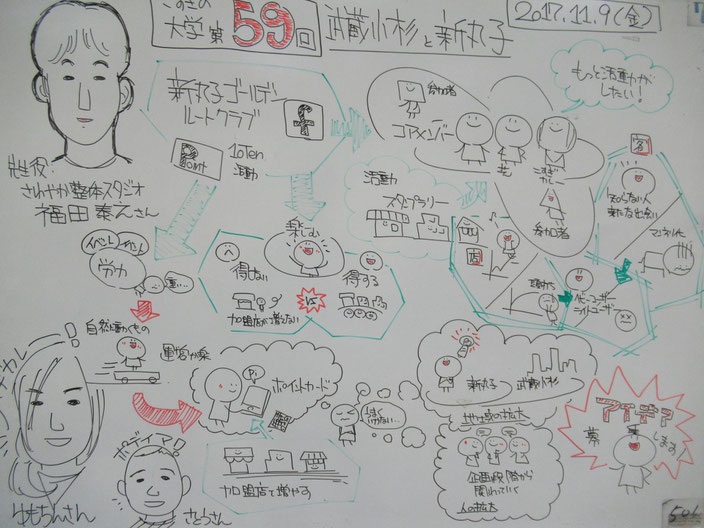 こすぎの
大学 第59回
武蔵小杉と新丸子
2017.11.9(金)
先生役:
さわやか整体スタジオ
福田泰之さん
新丸子ゴールデン
ルートクラブ
f
Point
10Ten
活動
参加者
コアメンバー
こすぎ
カレー
参加者
もっと活動力が
したい!
活動
スタンプラリー
知らない人
新たな出会い
マンネリ化
ヘビーユーザー
ライトユーザー
イベント
労力
楽しむ
得しない
得する
加盟店が増えない
VS
自然に動くもの
運営が楽
Pi
ポイントカード
加盟店を増やす
新丸子
武蔵小杉
地域の拡大
企画段階から
関わっていく
人の拡大
アイデア
募
します
ボディイマ!
ゆもちんさん
さとうさん